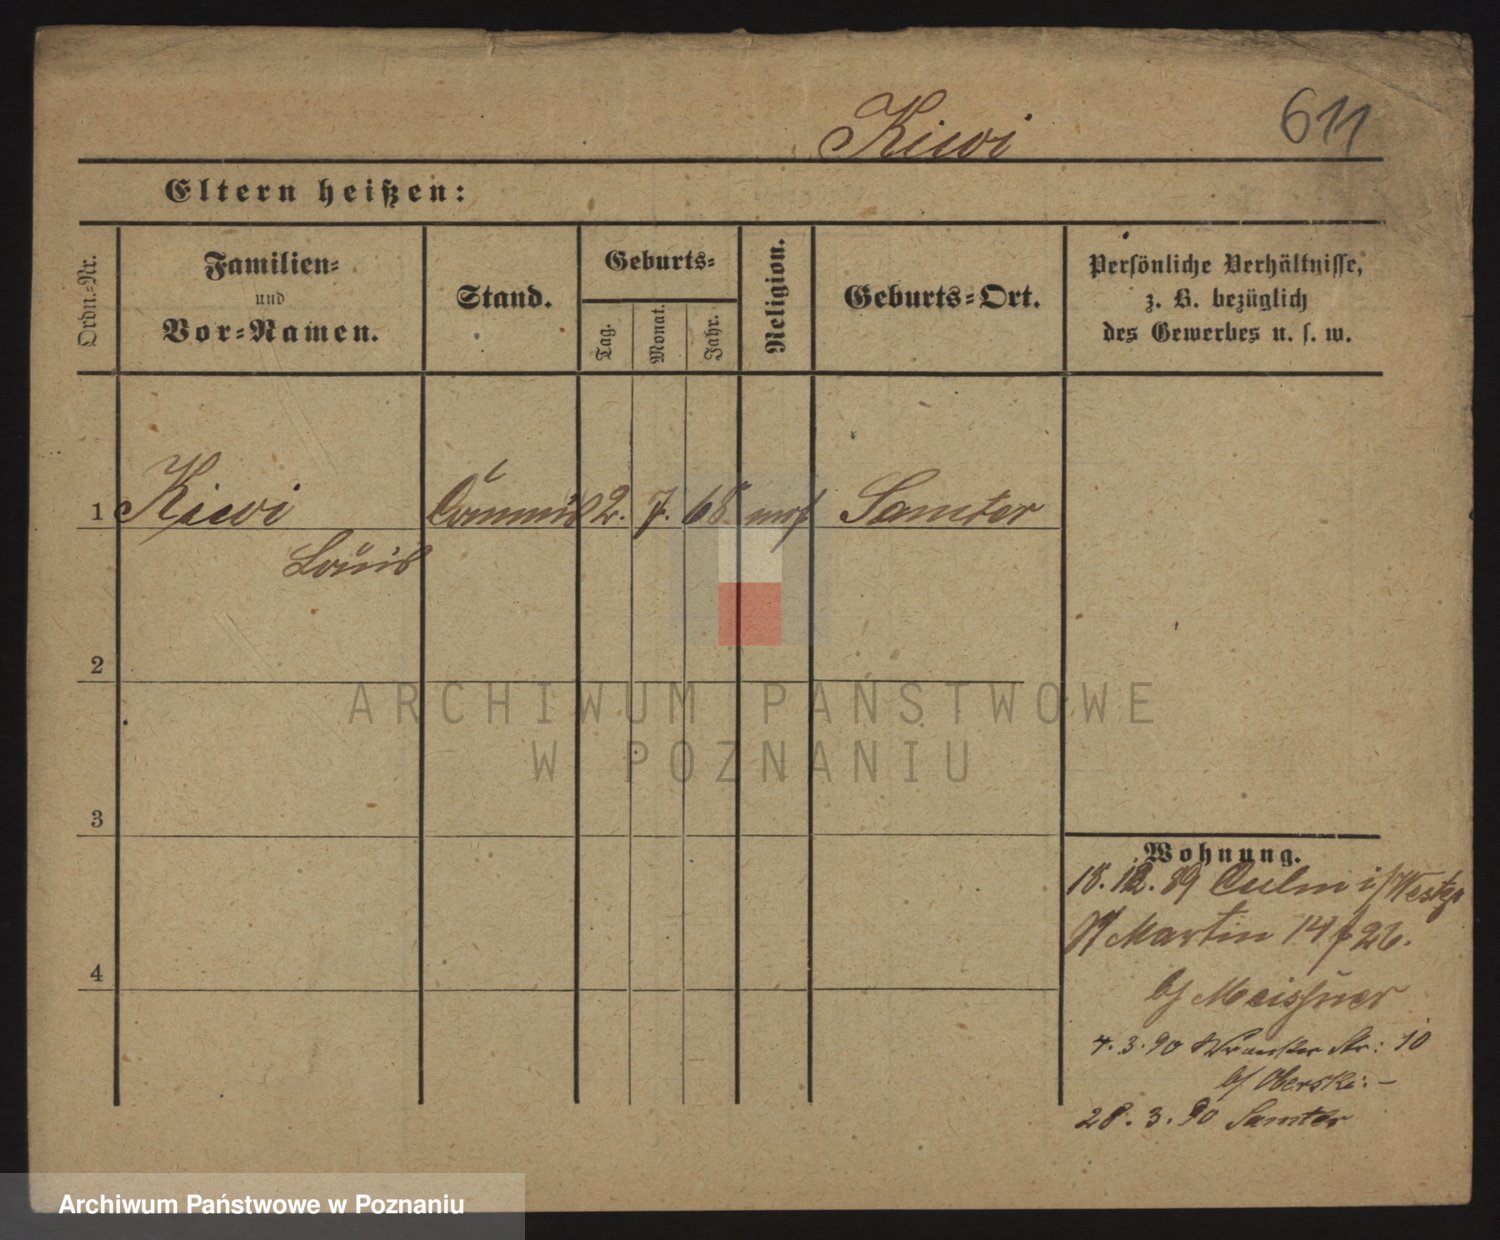 Kiwi
611
Eltern heißen:
Ordn.-Nr.
Familien-
und
Vor-Namen.
Stand.
Geburts-
Tag.
Monat.
Jahr.
Religion.
Geburts-Ort.
Persönliche Verhältnisse,
z. B. bezüglich
des Gewerbes u. s. w.
1 Kiwi Commis 2. 7. 68 mos Samter
Louis
2
3
4
Wohnung.
18. 12. 89 Culm i/Westpr
Martin 14 26.
b/ Meissner
4. 3. 90 Str: 10
b/ Oberski. -
28. 3. 90 Samter
ARCHIWUM PAŃSTWOWE
W POZNANIU
Archiwum Państwowe w Poznaniu